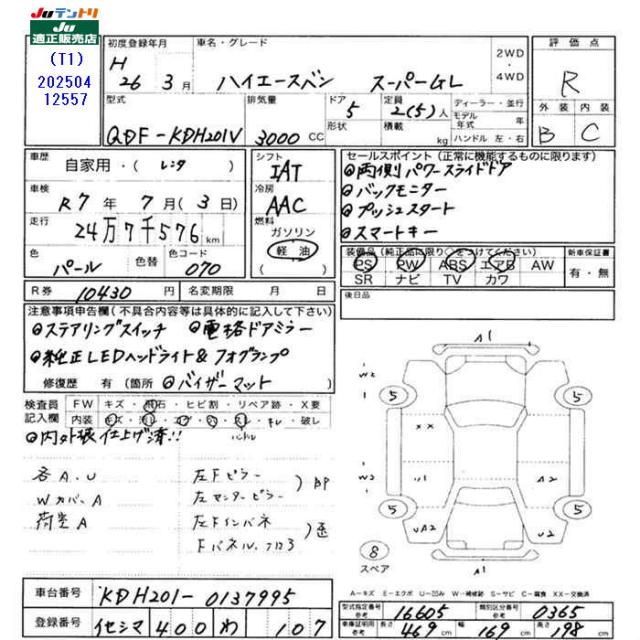 JUテントリ
JU
適正販売店
(T1)
202504
12557
初度登録年月 車名・グレード 2WD・4WD 評価点
H 26 3月 ハイエースバン スーパーGL R
型式 排気量 ドア 5 定員 2(5)人 ディーラー・並行 外装 内装
QDF-KDH201V 3000 CC 形状 積載 kg モデル年式 年 ハンドル 左・右 B C
車歴 自家用・(レンタ) シフト IAT セールスポイント(正常に機能するものに限ります)
◎両側パワースライドドア
車検 R7年 7月(3日) 冷房 AAC ◎バックモニター
走行 24万7千576km 燃料 ガソリン 軽油 ◎プッシュスタート
◎スマートキー
色 パール 色替 色コード 070 装備品(純正品に限り○をつけてください) 新車保証書
PS PW ABS エアB AW 有・無
SR ナビ TV カワ
R券 10430円 名変期限 月 日 後日品
注意事項申告欄(不具合内容等は具体的に記入して下さい)
◎ステアリングスイッチ ◎電格ドアミラー
◎純正LEDヘッドライト&フォグランプ
修復歴 有(箇所 ◎バイザーマット
検査員記入欄 FW キズ・飛石・ヒビ割・リペア跡・X要
内装 キズ・汚レ・コゲ・穴・スレ・キレ・破レ
◎内外装仕上げ済!!
各A.U 左Fピラー
WカバーA 左センターピラー
荷室A 左Fインパネ
A1
W2
1
5
5
XX
W2
A2
A2
5
5
UA2
U2
A1
8
スペア
A-キズ E-エクボ U-凹み W-補修跡 S-サビ C-腐食 XX-交換済
車台番号 KDH201-0137995
型式指定番号 16605 類別区分番号 0365
登録番号 イセシマ 400 わ 107
車体証明用 長さ 469cm 幅 169cm 高さ 198cm